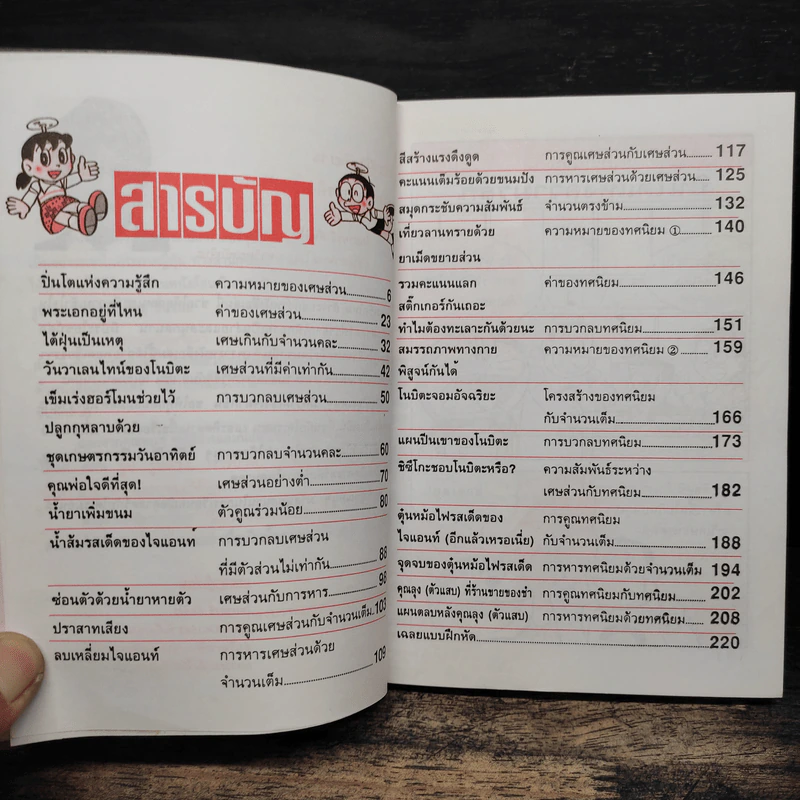 สารบัญ
ปิ่นโตแห่งความรู้สึก ความหมายของเศษส่วน............6
พระเอกอยู่ที่ไหน ค่าของเศษส่วน............23
ไต้ฝุ่นเป็นเหตุ เศษเกินกับจำนวนคละ............32
วันวาเลนไทน์ของโนบิตะ เศษส่วนที่มีค่าเท่ากัน............42
เข็มเร่งฮอร์โมนช่วยไว้ การบวกลบเศษส่วน............50
ปลูกกุหลาบด้วย
ชุดเกษตรกรรมวันอาทิตย์ การบวกลบจำนวนคละ............60
คุณพ่อใจดีที่สุด! เศษส่วนอย่างต่ำ............70
น้ำยาเพิ่มขนม ตัวคูณร่วมน้อย............80
น้ำส้มรสเด็ดของไจแอนท์ การบวกลบเศษส่วน
ที่มีตัวส่วนไม่เท่ากัน............88
ซ่อนตัวด้วยน้ำยาหายตัว เศษส่วนกับการหาร............98
ปราสาทเสียง การคูณเศษส่วนกับจำนวนเต็ม...103
ลบเหลี่ยมไจแอนท์ การหารเศษส่วนด้วย
จำนวนเต็ม............109
สีสร้างแรงดึงดูด การคูณเศษส่วนกับเศษส่วน............117
คะแนนเต็มร้อยด้วยขนมปัง การหารเศษส่วนด้วยเศษส่วน............125
สมุดกระชับความสัมพันธ์ จำนวนตรงข้าม............132
เที่ยวลานทรายด้วย ความหมายของทศนิยม ①............140
ยาเม็ดขยายส่วน
รวมคะแนนแลก ค่าของทศนิยม............146
สติ๊กเกอร์กันเถอะ
ทำไมต้องทะเลาะกันด้วยนะ การบวกลบทศนิยม............151
สมรรถภาพทางกาย ความหมายของทศนิยม ②............159
พิสูจน์กันได้
โนบิตะจอมอัจฉริยะ โครงสร้างของทศนิยม
กับจำนวนเต็ม............166
แผนปีนเขาของโนบิตะ การบวกลบทศนิยม............173
ชิซึโกะชอบโนบิตะหรือ? ความสัมพันธ์ระหว่าง
เศษส่วนกับทศนิยม............182
ตุ๋นหม้อไฟรสเด็ดของ การคูณทศนิยม
ไจแอนท์ (อีกแล้วเหรอเนี่ย) กับจำนวนเต็ม............188
จุดจบของตุ๋นหม้อไฟรสเด็ด การหารทศนิยมด้วยจำนวนเต็ม 194
คุณลุง (ตัวแสบ) ที่ร้านขายของชำ การคูณทศนิยมกับทศนิยม............202
แผนตลบหลังคุณลุง (ตัวแสบ) การหารทศนิยมด้วยทศนิยม............208
เฉลยแบบฝึกหัด............220